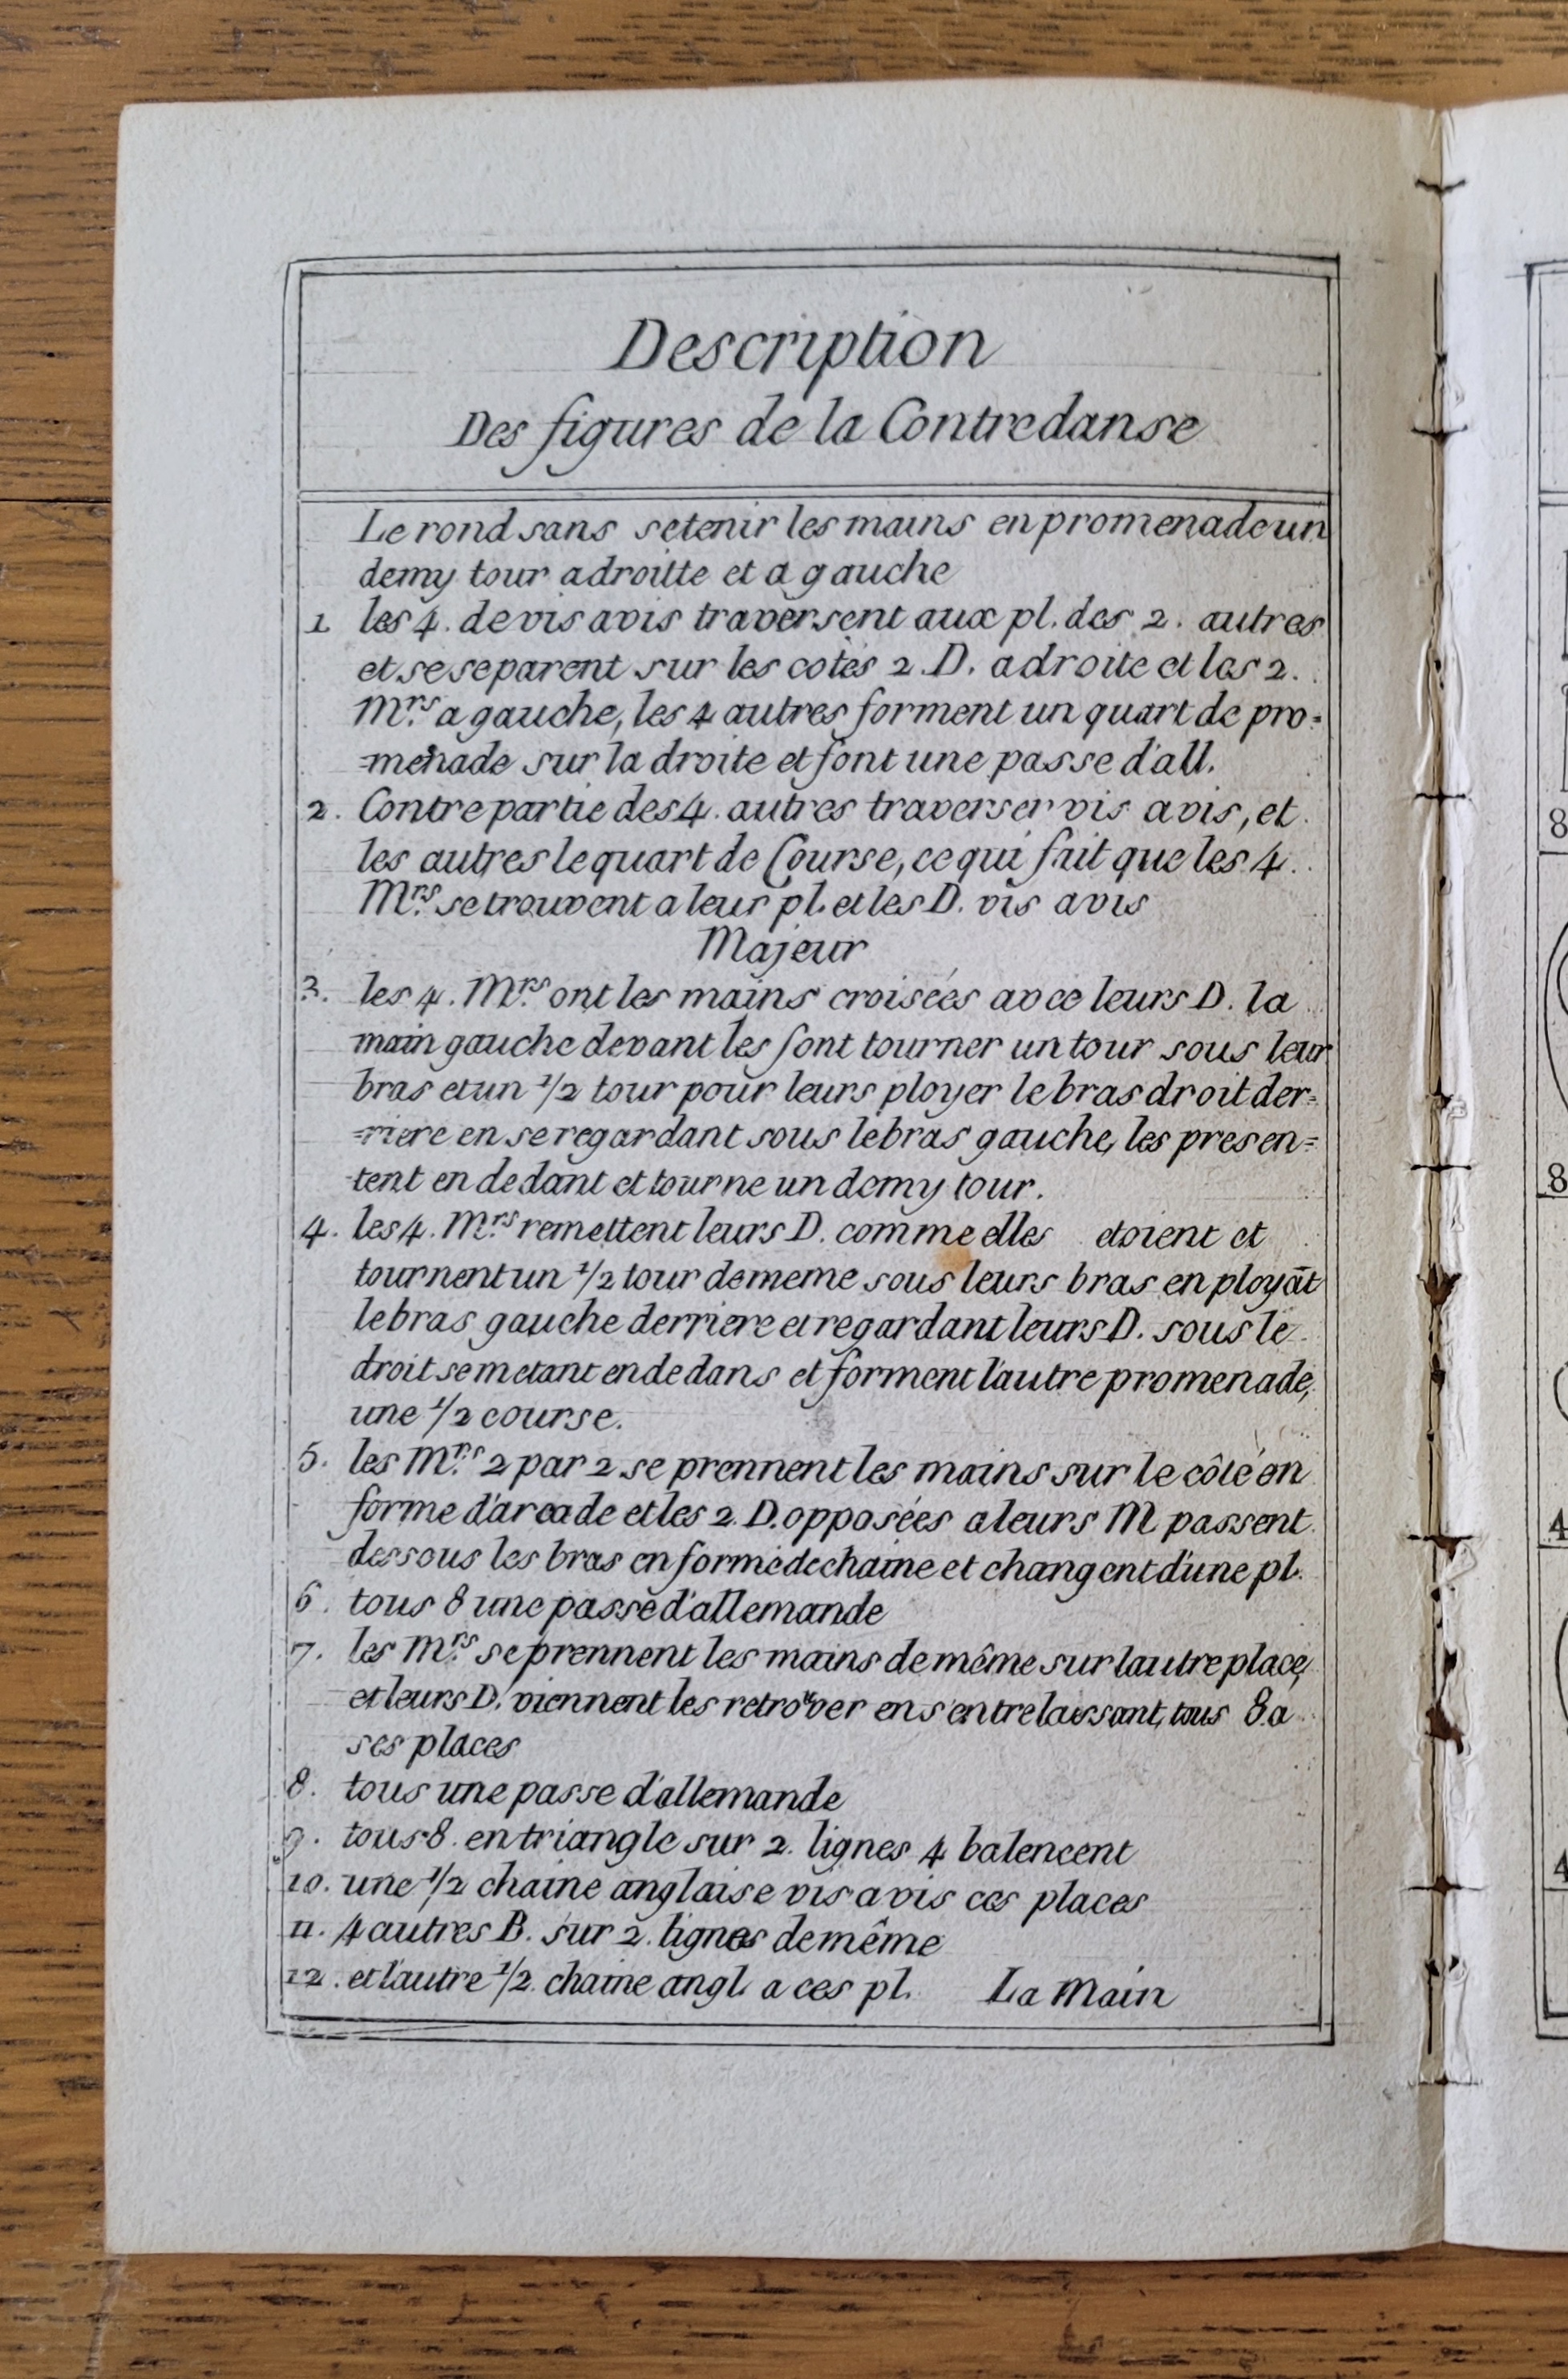 Description
Des figures de la Contredanse
Le rond sans se tenir les mains en promenade un
demy tour a droitte et a gauche
1 les 4. de vis avis traversent aux pl. des 2. autres
et se separent sur les cotés 2. D. a droite et les 2.
Mrs. a gauche, les 4 autres forment un quart de pro=
=menade sur la droite et font une passe d'all.
2. Contre partie des 4. autres traverser vis avis, et
les autres le quart de Course, ce qui fait que les 4.
Mrs. se trouvent a leur pl. et les D. vis avis
Majeur
3. les 4. Mrs. ont les mains croisées avec leurs D. la
main gauche devant les font tourner un tour sous leur
bras et un 1/2 tour pour leurs ployer le bras droit der=
=riere en se regardant sous le bras gauche, les presen=
tent en dedant et tourne un demy tour.
4. les 4. Mrs. remettent leurs D. comme elles etoient et
tournent un 1/2 tour de meme sous leurs bras en ployāt
le bras gauche derriere et regardant leurs D. sous le
droit se metant en dedans et forment l'autre promenade,
une 1/2 course.
5. les Mrs. 2 par 2 se prennent les mains sur le côté en
forme d'arcade et les 2. D. opposées a leurs M passent
dessous les bras en forme de chaine et changent d'une pl.
6. tous 8 une passe d'allemande
7. les Mrs. se prennent les mains de même sur lautre place,
et leurs D. viennent les retrouver en s entrelaissant, tous 8. a
ses places
8. tous une passe d'allemande
9. tous 8. en triangle sur 2. lignes 4 balencent
10. une 1/2 chaine anglaise vis avis ces places
11. 4 autres B. sur 2. lignes de même
12. et l'autre 1/2. chaine angl. a ces pl. La Main
8
8
4
4